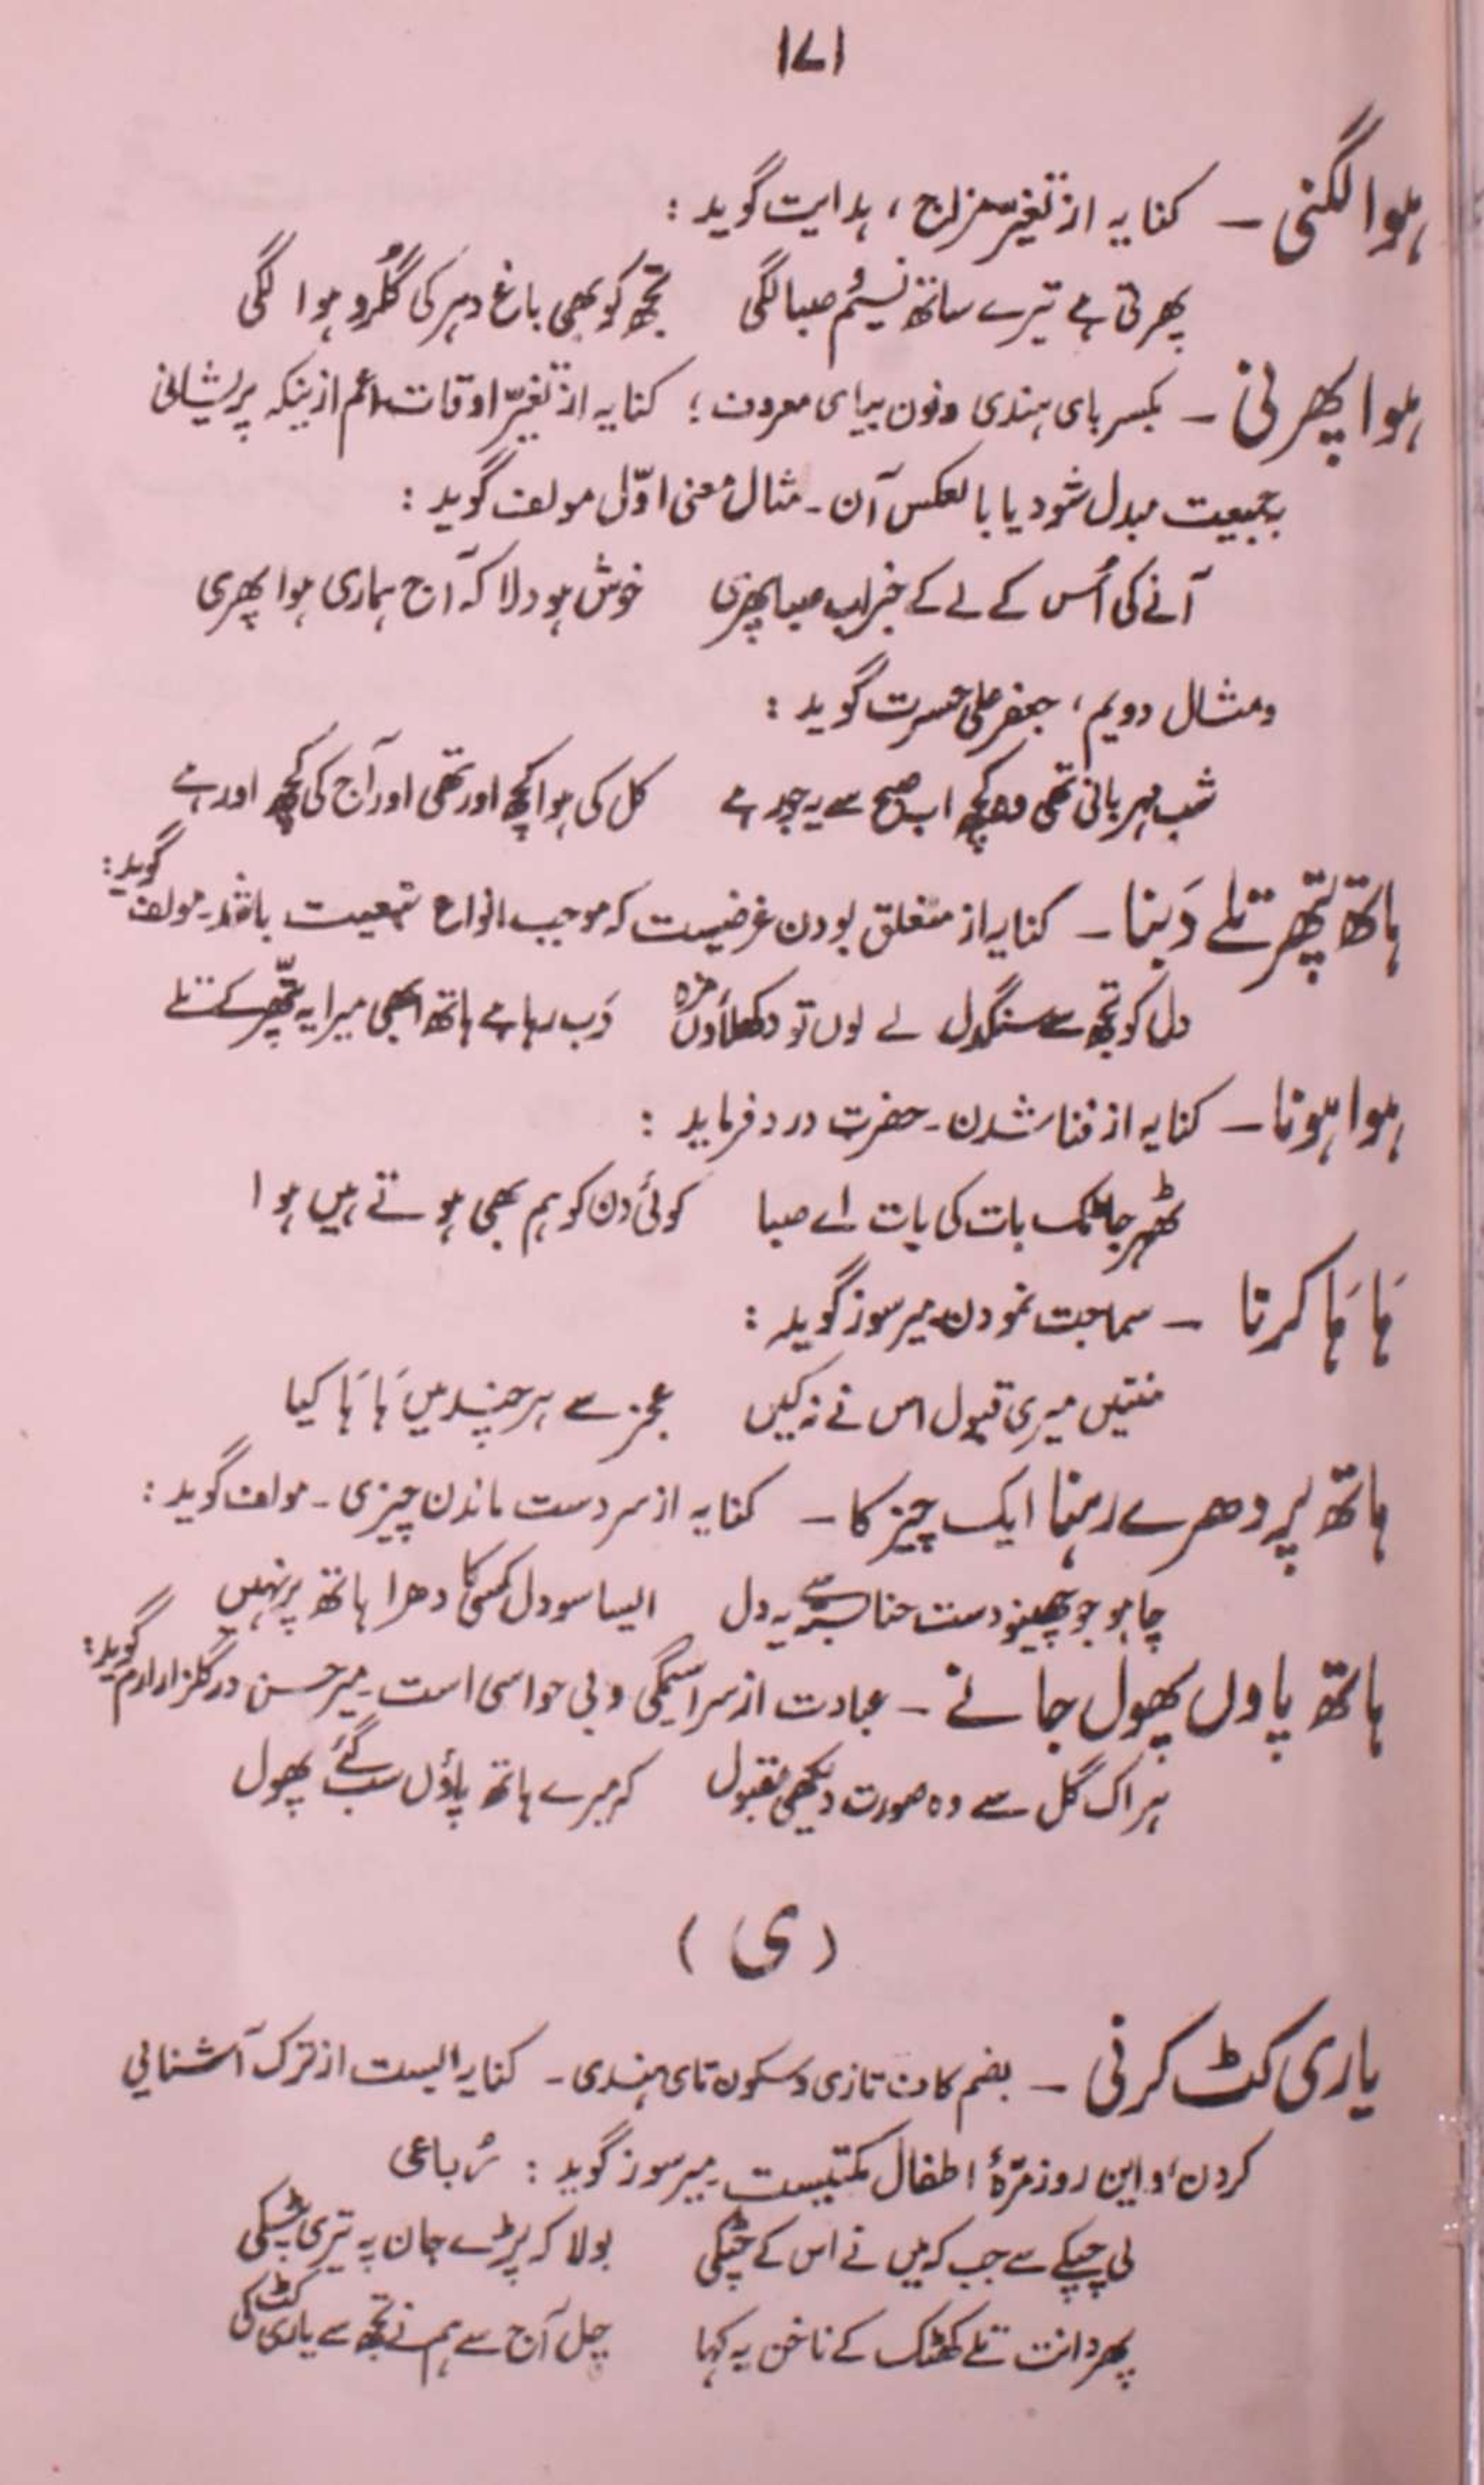 ۱۷۱
ہوا لگنی – کنایہ از تغیّر مزاج، ہدایت گوید :
پھرتی ہے تیرے ساتھ نسیمِ صبا لگی تجھ کو بھی باغ دہر کی گُلرو ہوا لگی
ہوا پھرنی – بکسر بای ہندی و نون بیای معروف ؛ کنایہ از تغیّر اوقات اعم ازینکہ پریشانی
بجمعیت مبدل شود یا بالعکس آن ۔ مثال معنی اوّل مولف گوید :
آنے کی اُس کے لے کے خبر اب صبا پھری خوش ہو دلا کہ آج ہماری ہوا پھری
ومثال دویم، جعفر علی حسرت گوید :
شب مہربانی تھی وہ کچھ اب صبح سے یہ جور ہے کل کی ہوا کچھ اور تھی اور آج کی کچھ اور ہے
ہاتھ پتھر تلے دَبنا – کنایہ از متعلق بودن غرضیست کہ موجب انواع تبعیت باشد ۔ مولف گوید :
دل کو تجھ سے سنگدل لے لوں تو دکھلاؤں مزہ دَب رہا ہے ہاتھ ابھی میرا یہ پتّھر کے تلے
ہوا ہونا – کنایہ از فنا شدن ۔ حضرت درد فرماید :
ٹھہر جا ٹک بات کی بات اے صبا کوئی دن کو ہم بھی ہوتے ہیں ہوا
ہَا ہَا کرنا – سماجت نمودن، میر سوز گوید :
منتیں میری قبول اس نے نہ کیں عجز سے ہر چند میں ہَا ہَا کیا
ہاتھ پر دھرے رہنا ایک چیز کا – کنایہ از سر دست ماندن چیزی ۔ مولف گوید :
چاہو جو چھینو دست حنا بستہ سے یہ دل ایسا سو دل کسی کا دھرا ہاتھ پر نہیں
ہاتھ پاوں پھول جانے – عبادت از سراسیمگی و بی حواسی است ۔ میر حسن در گلزار ارم گوید :
ہر اک گل سے وہ صورت دیکھی مقبول کہ میرے ہاتھ پاؤں سب گئے پھول
( ی )
یاری کٹ کرنی – بضم کاف تازی و سکون تای ہندی ۔ کنایہ ایست از ترک آشنایی
کردن، و این روز مرّۂ اطفال مکتبیست ۔ میر سوز گوید : رُباعی
لی چپکے سے جب کہ میں نے اس کے چٹکی بولا کہ پڑے جان پہ تیری پٹکی
پھر دانت تلے کھٹک کے ناخن یہ کہا چل آج سے ہم نے تجھ سے یاری کٹ کی